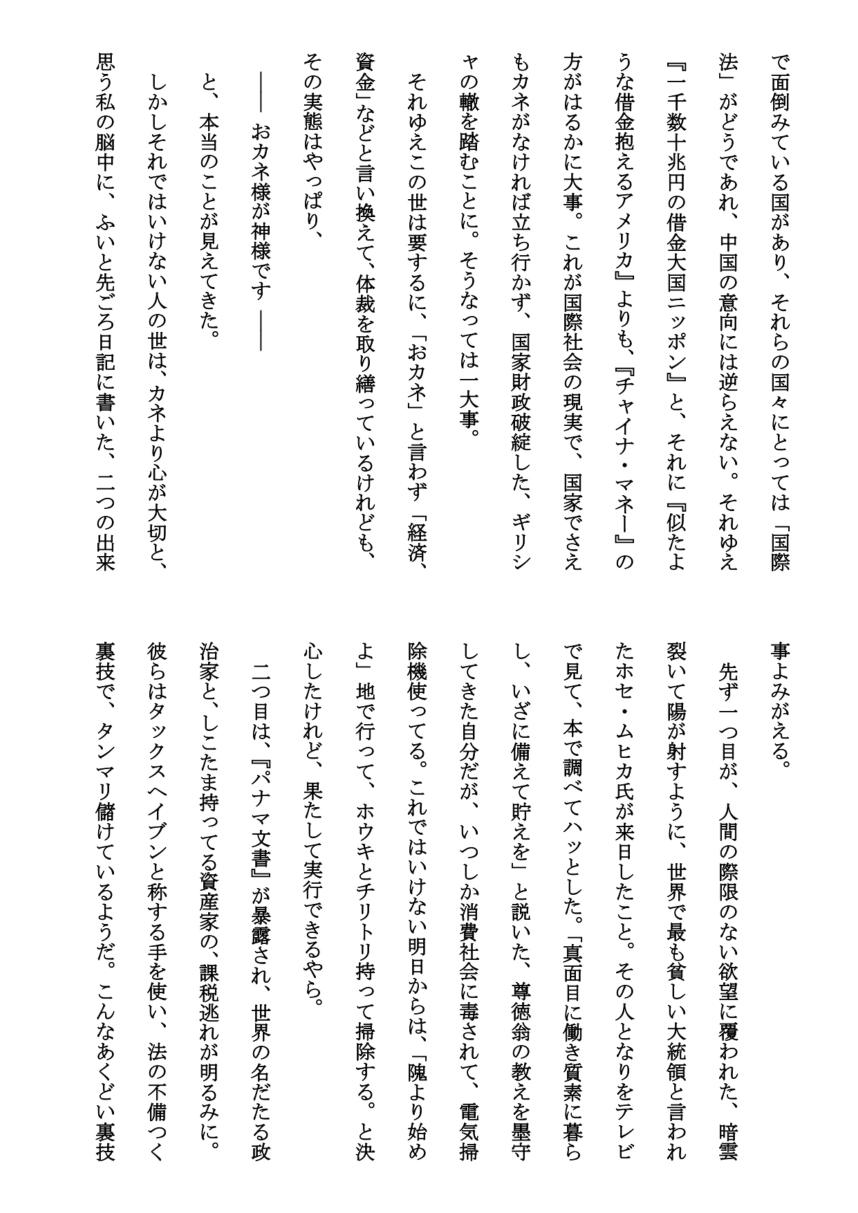 で面倒みている国があり、それらの国々にとっては「国際
法」がどうであれ、中国の意向には逆らえない。それゆえ
『一千数十兆円の借金大国ニッポン』と、それに『似たよ
うな借金抱えるアメリカ』よりも、『チャイナ・マネー』の
方がはるかに大事。これが国際社会の現実で、国家でさえ
もカネがなければ立ち行かず、国家財政破綻した、ギリシ
ャの轍を踏むことに。そうなっては一大事。
それゆえこの世は要するに、「おカネ」と言わず「経済、
資金」などと言い換えて、体裁を取り繕っているけれども、
その実態はやっぱり、
―― おカネ様が神様です ――
と、本当のことが見えてきた。
しかしそれではいけない人の世は、カネより心が大切と、
思う私の脳中に、ふいと先ごろ日記に書いた、二つの出来
事よみがえる。
先ず一つ目が、人間の際限のない欲望に覆われた、暗雲
裂いて陽が射すように、世界で最も貧しい大統領と言われ
たホセ・ムヒカ氏が来日したこと。その人となりをテレビ
で見て、本で調べてハッとした。「真面目に働き質素に暮ら
し、いざに備えて貯えを」と説いた、尊徳翁の教えを墨守
してきた自分だが、いつしか消費社会に毒されて、電気掃
除機使ってる。これではいけない明日からは、「隗より始め
よ」地で行って、ホウキとチリトリ持って掃除する。と決
心したけれど、果たして実行できるやら。
二つ目は、『パナマ文書』が暴露され、世界の名だたる政
治家と、しこたま持ってる資産家の、課税逃れが明るみに。
彼らはタックスヘイブンと称する手を使い、法の不備つく
裏技で、タンマリ儲けているようだ。こんなあくどい裏技